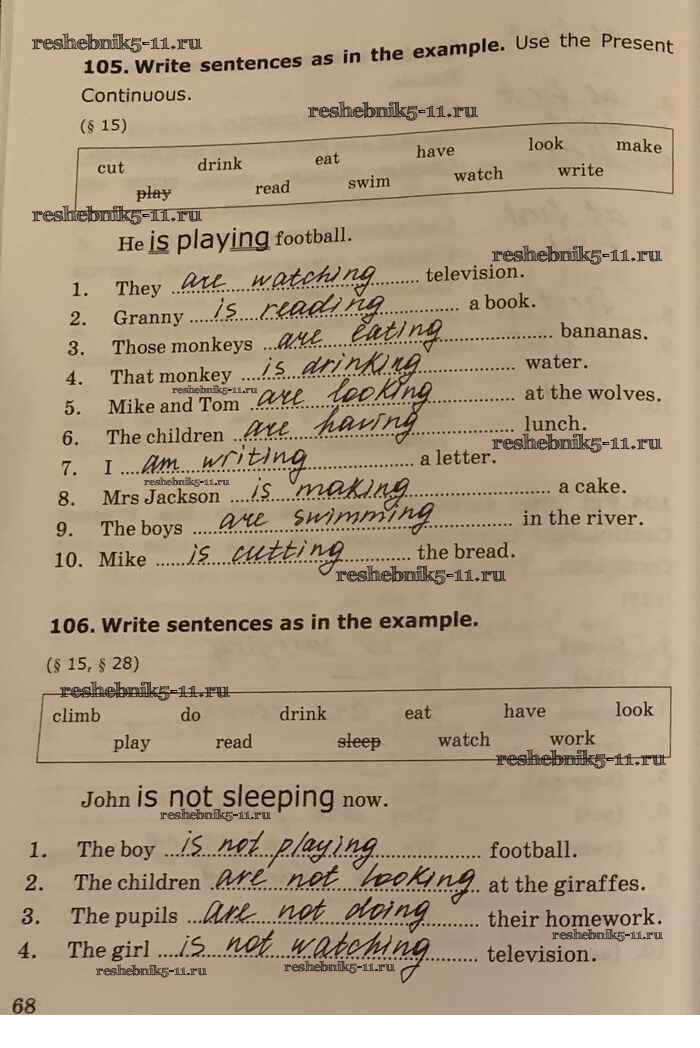 reshebnik5-11.ru
105. Write sentences as in the example. Use the Present
Continuous.
reshebnik5-11.ru
(§ 15)
cut drink eat have look make
play read swim watch write
reshebnik5-11.ru
He is playing football.
reshebnik5-11.ru
1. They are watching television.
2. Granny is reading a book.
3. Those monkeys are eating bananas.
4. That monkey is drinking water.
reshebnik5-11.ru
5. Mike and Tom are looking at the wolves.
6. The children are having lunch.
reshebnik5-11.ru
7. I am writing a letter.
reshebnik5-11.ru
8. Mrs Jackson is making a cake.
9. The boys are swimming in the river.
10. Mike is cutting the bread.
reshebnik5-11.ru
106. Write sentences as in the example.
(§ 15, § 28)
reshebnik5-11.ru
climb do drink eat have look
play read sleep watch work
reshebnik5-11.ru
John is not sleeping now.
reshebnik5-11.ru
1. The boy is not playing football.
2. The children are not looking at the giraffes.
3. The pupils are not doing their homework.
reshebnik5-11.ru
4. The girl is not watching television.
reshebnik5-11.ru reshebnik5-11.ru
68